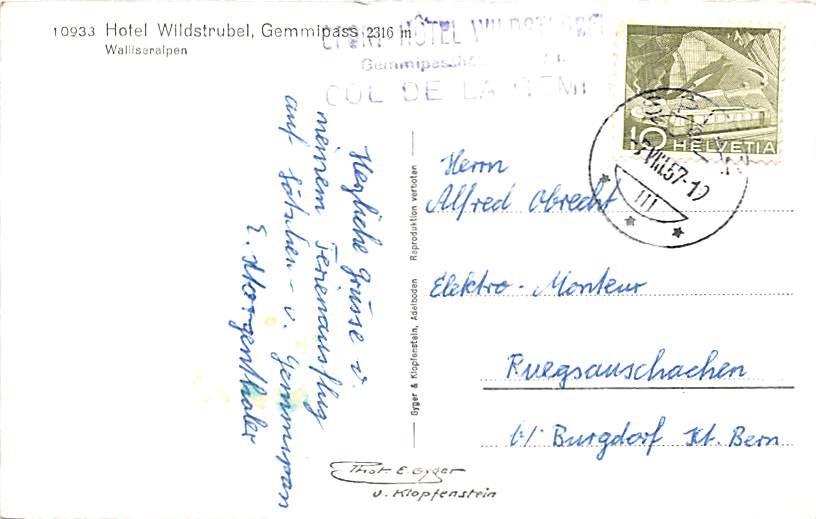 10933 Hotel Wildstrubel, Gemmipass 2316 m
Walliseralpen
SPORT-HÔTEL WILDSTRUBEL
Gemmipasshöhe
COL DE LA GEMMI
10 HELVETIA
VIII.57-19
III
Herzliche Grüsse v.
meinem Ferienausflug
auf Lötschen- v. Gemmipass
E. Morgenthaler
Reproduktion verboten
Gyger & Klopfenstein, Adelboden
Herrn
Alfred Obrecht
Elektro-Monteur
Ruegsauschachen
b/ Burgdorf Kt. Bern
Phot. E. Gyger
v. Klopfenstein